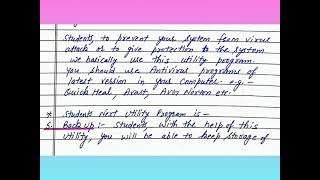 Students to prevent your system from virus
attack or to give protection to the system
we basically use this utility program.
You should use Antivirus programs of
latest version in your Computer. e.g.
Quick Heal, Avast, Avir Norton etc.
* Students Next Utility Program is -
5. Back up :- Students, with the help of this
utility, you will be able to keep storage of